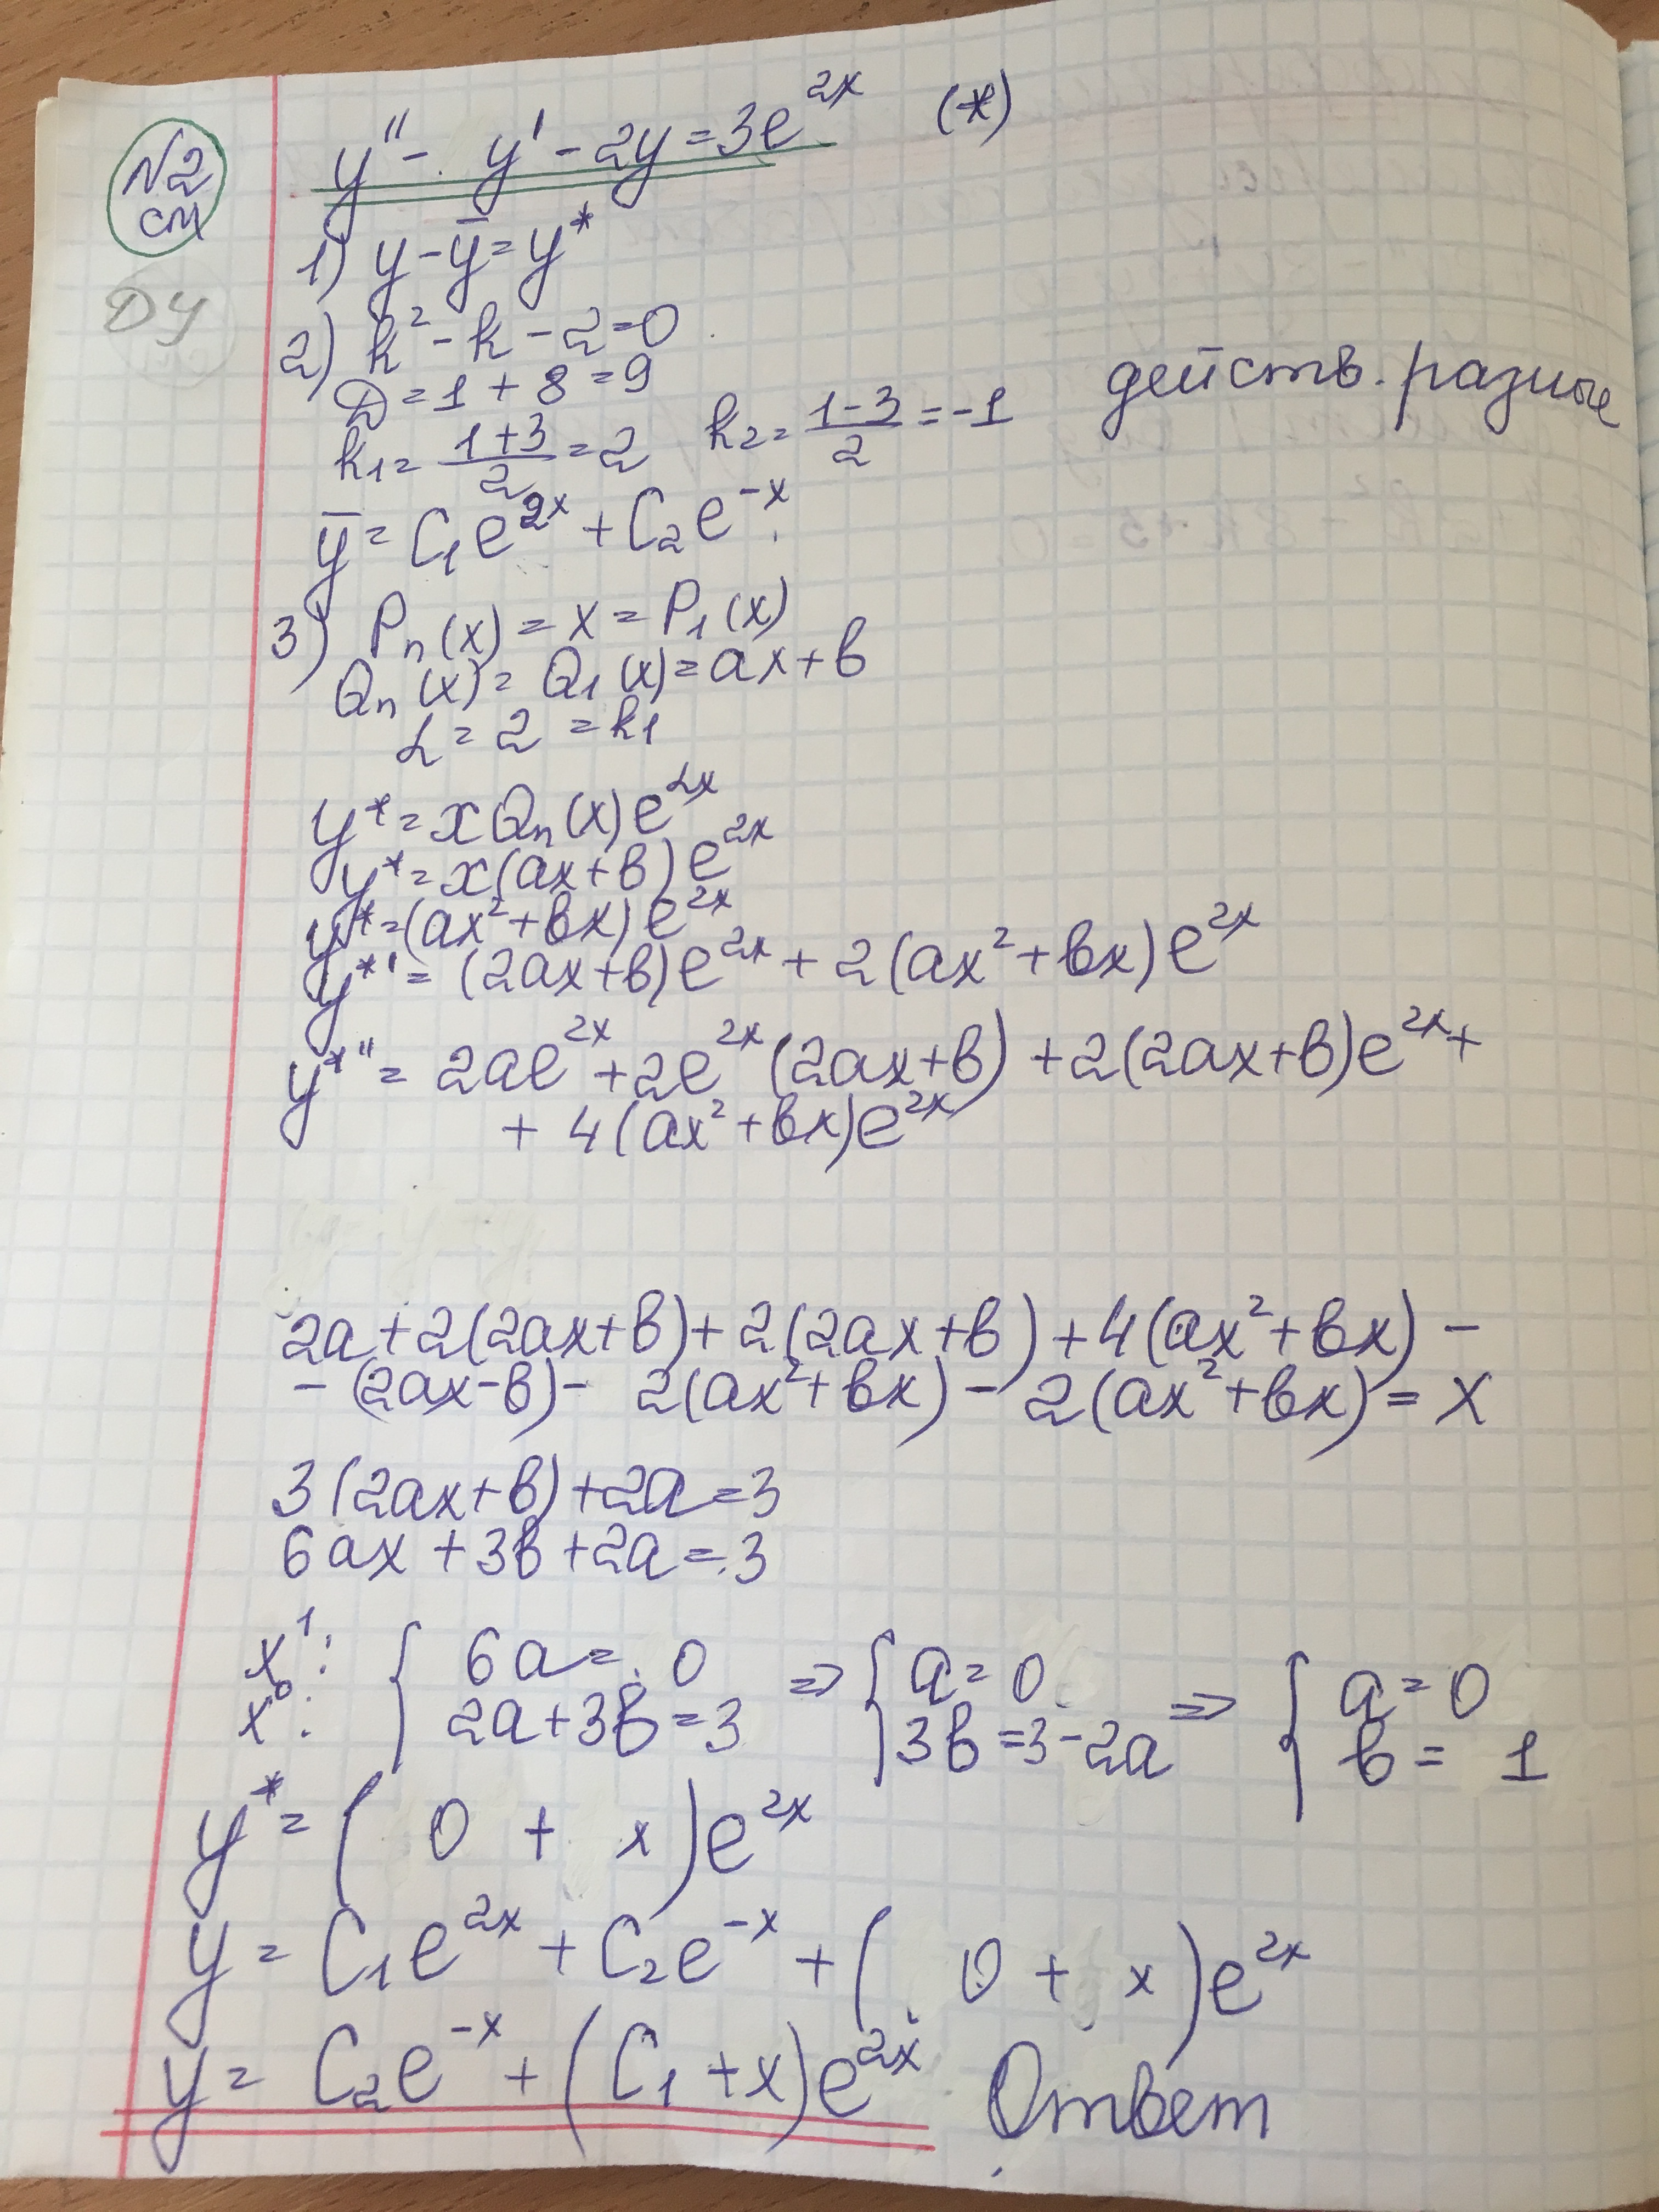 N2
см
ДУ
y'' - y' - 2y = 3e^{2x} (*)
1) y - ȳ = y*
2) k² - k - 2 = 0
D = 1 + 8 = 9
k₁ = (1+3)/2 = 2 k₂ = (1-3)/2 = -1 действ. разные
ȳ = C₁e^{2x} + C₂e^{-x}
3) Pₙ(x) = x = P₁(x)
Qₙ(x) = Q₁(x) = ax + b
α = 2 = k₁
y* = xQₙ(x)e^{αx}
y* = x(ax+b)e^{2x}
y* = (ax²+bx)e^{2x}
y*' = (2ax+b)e^{2x} + 2(ax²+bx)e^{2x}
y*'' = 2ae^{2x} + 2e^{2x}(2ax+b) + 2(2ax+b)e^{2x} +
+ 4(ax²+bx)e^{2x}
2a + 2(2ax+b) + 2(2ax+b) + 4(ax²+bx) -
- (2ax-b) - 2(ax²+bx) - 2(ax²+bx) = x
3(2ax+b) + 2a = 3
6ax + 3b + 2a = 3
x¹: { 6a = 0 ⇒ { a = 0 ⇒ { a = 0
x⁰: { 2a + 3b = 3 { 3b = 3 - 2a { b = 1
y* = (0 + x)e^{2x}
y = C₁e^{2x} + C₂e^{-x} + (0 + x)e^{2x}
y = C₂e^{-x} + (C₁ + x)e^{2x} Ответ